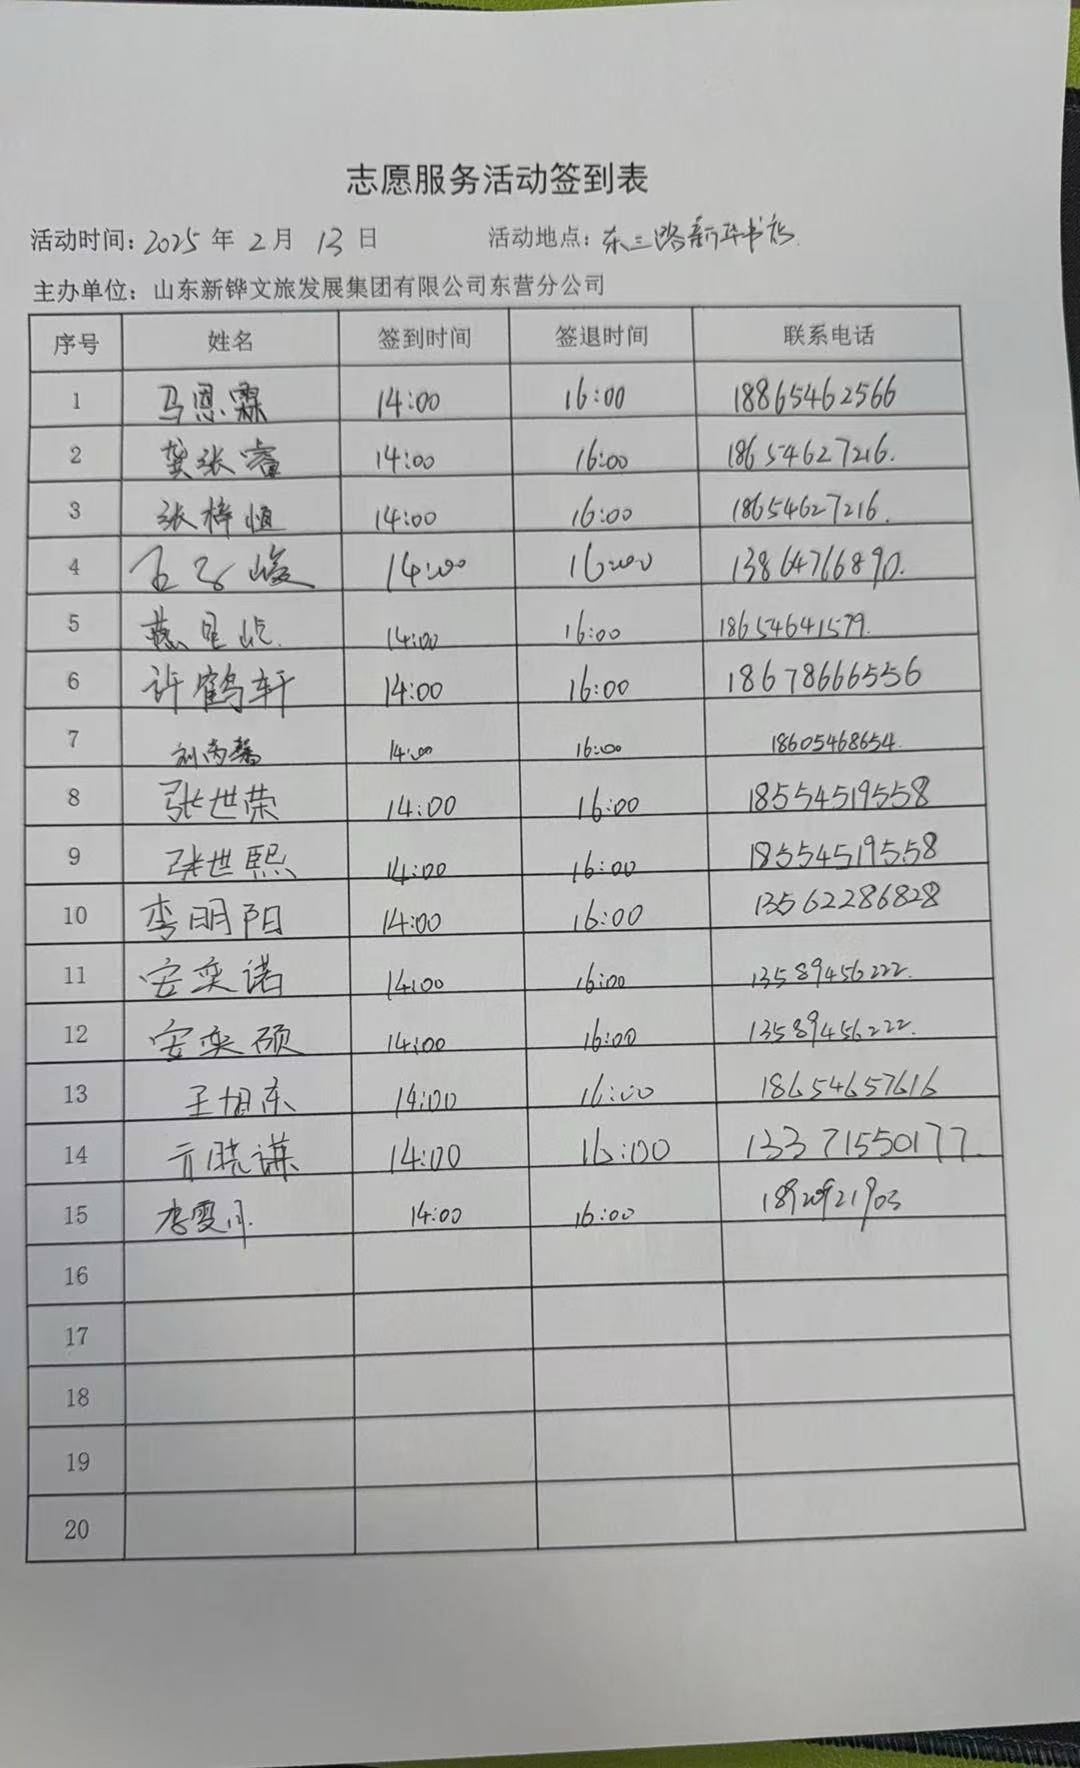 志愿服务活动签到表
活动时间: 2025 年 2 月 13 日 活动地点: 东三路新华书店.
主办单位: 山东新铧文旅发展集团有限公司东营分公司
序号 姓名 签到时间 签退时间 联系电话
1 马恩霖 14:00 16:00 18865462566
2 龚张睿 14:00 16:00 18654627216.
3 张梓恒 14:00 16:00 18654627216.
4 14:00 16:00 13864766890.
5 燕呈屹. 14:00 16:00 18654641579.
6 许鹤轩 14:00 16:00 18678666556
7 刘芮馨 14:00 16:00 18605468654.
8 张世荣 14:00 16:00 18554519558
9 张世熙 14:00 16:00 18554519558
10 李明阳 14:00 16:00 13562286828
11 安奕诺 14:00 16:00 13589456222.
12 安奕硕 14:00 16:00 13589456222.
13 王旭东 14:00 16:00 18654657616
14 亓晓谦 14:00 16:00 13371550177.
15 李雯月. 14:00 16:00 18920921903
16
17
18
19
20